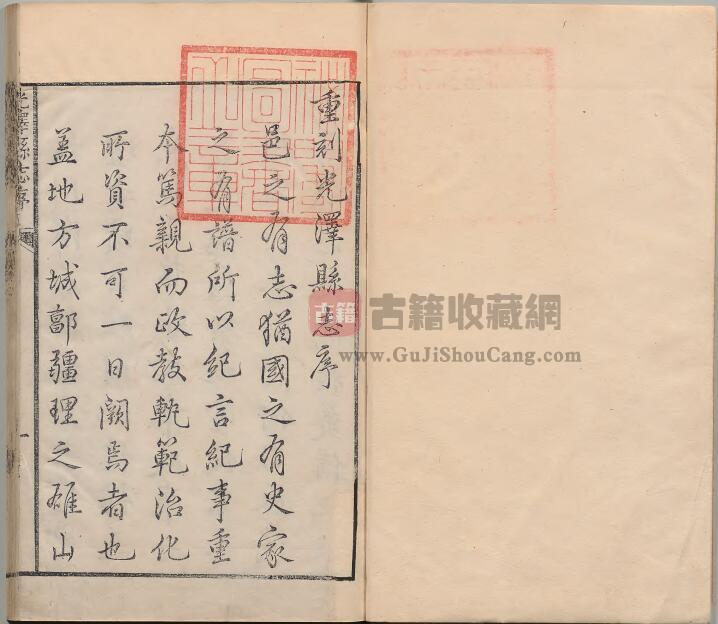 重刻光澤縣志序
邑之有志猶國之有史家
之有譜所以紀言紀事重
本篤親而政教軌範治化
所資不可一日闕焉者也
葢地方城鄙疆理之雄山
光澤縣志序
一
古籍
古籍收藏網
www.GuJiShouCang.com